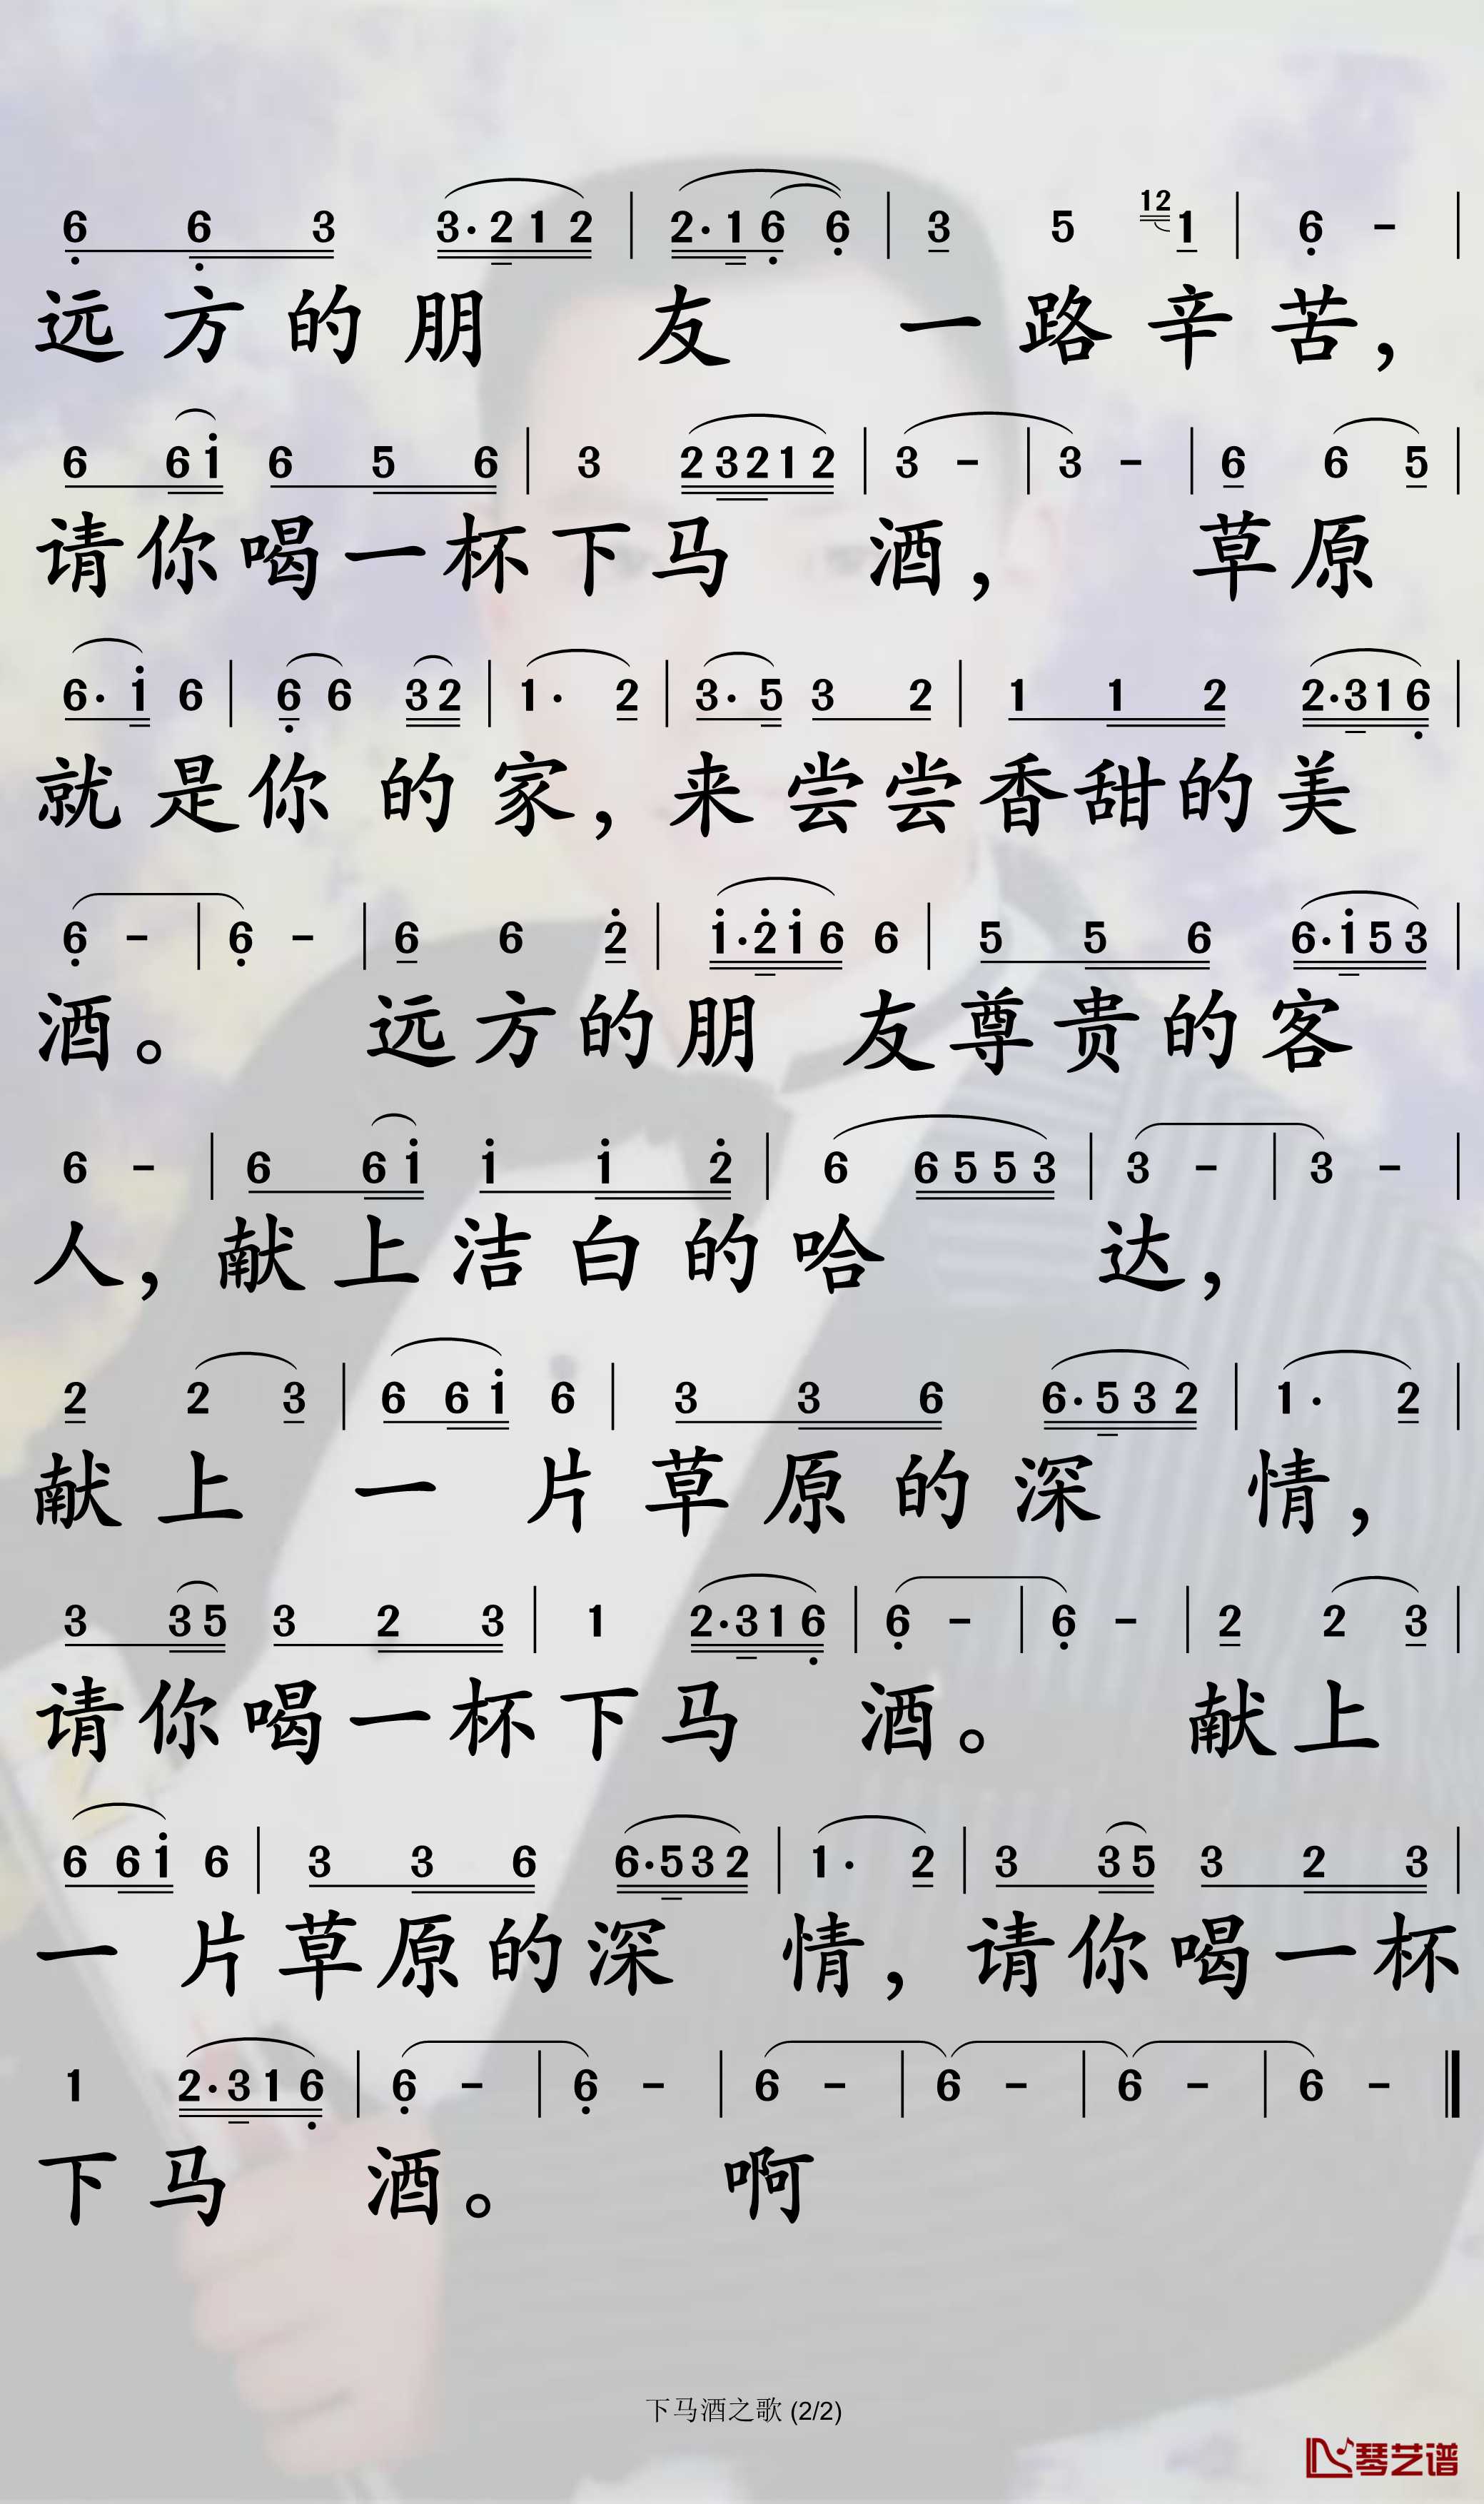 6 6 3 3·2 1 2 | 2·1 6 6 | 3 5 12 1 | 6 - |
远方的朋 友 一路辛苦，
6 6 1 6 5 6 | 3 2 3 2 1 2 | 3 - | 3 - | 6 6 5 |
请你喝一杯下马 酒， 草原
6· 1 6 | 6 6 3 2 | 1· 2 | 3· 5 3 2 | 1 1 2 2·3 1 6 |
就是你 的家，来尝尝香甜的美
6 - | 6 - | 6 6 2 | 1·2 1 6 6 | 5 5 6 6·1 5 3 |
酒。 远方的朋 友尊贵的客
6 - | 6 6 1 1 1 2 | 6 6 5 5 3 | 3 - | 3 - |
人，献上洁白的哈 达，
2 2 3 | 6 6 1 6 | 3 3 6 6·5 3 2 | 1· 2 |
献上 一 片草原的深 情，
3 3 5 3 2 3 | 1 2·3 1 6 | 6 - | 6 - | 2 2 3 |
请你喝一杯下马 酒。 献上
6 6 1 6 | 3 3 6 6·5 3 2 | 1· 2 | 3 3 5 3 2 3 |
一 片草原的深 情，请你喝一杯
1 2·3 1 6 | 6 - | 6 - | 6 - | 6 - | 6 - | 6 - ‖
下马 酒。 啊
下马酒之歌 (2/2)
琴艺谱